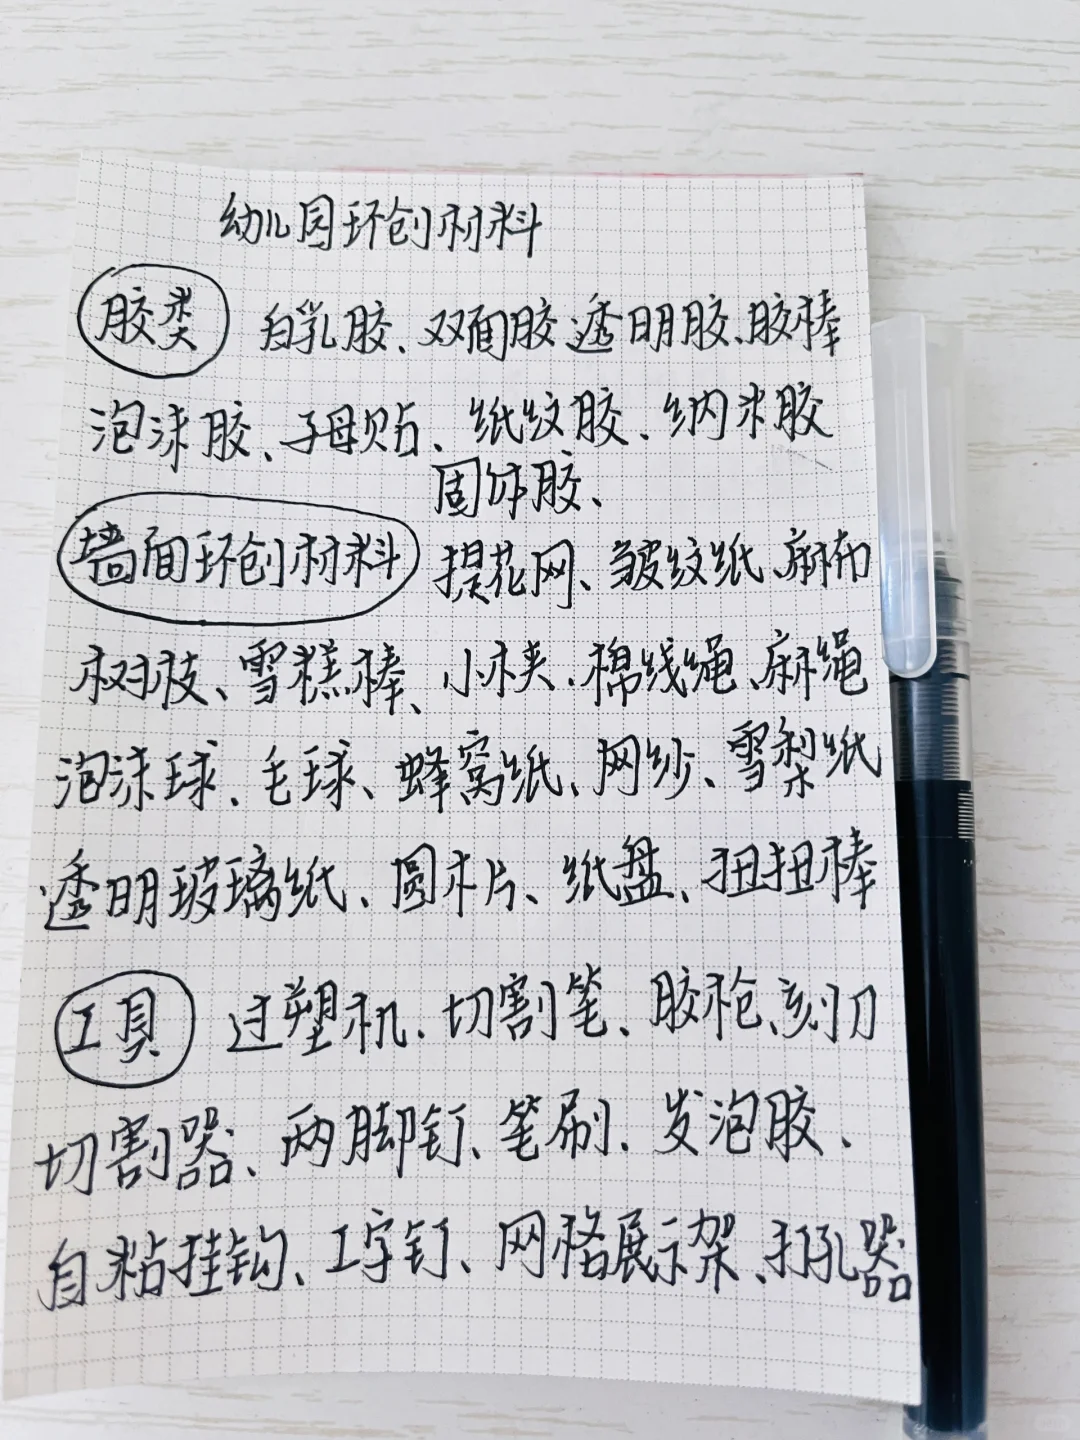 幼儿园环创材料
胶类 白乳胶、双面胶 透明胶、胶棒
泡沫胶、子母贴、纸纹胶、纳米胶
固体胶、
墙面环创材料 提花网、皱纹纸、麻布
树枝、雪糕棒、小木夹、棉线绳、麻绳
泡沫球、毛球、蜂窝纸、网纱、雪梨纸
透明玻璃纸、圆木片、纸盘、扭扭棒
工具 过塑机、切割笔、胶枪、刻刀
切割器、两脚钉、笔刷、发泡胶、
自粘挂钩、工字钉、网格展示架、打孔器